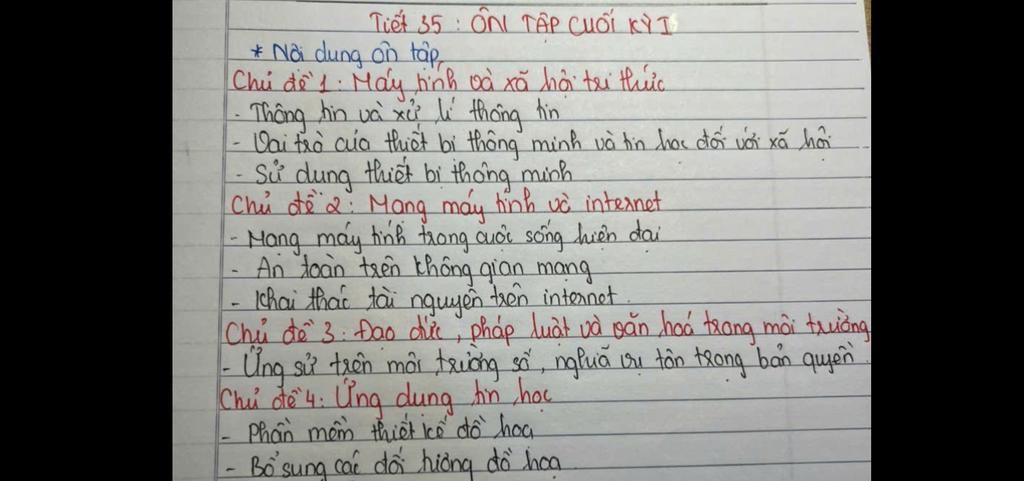 Tiết 35 : ÔN TẬP CUỐI KỲ I
* Nội dung ôn tập
Chủ đề 1 : Máy tính và xã hội tri thức
- Thông tin và xử lí thông tin
- Vai trò của thiết bị thông minh và tin học đối với xã hội
- Sử dụng thiết bị thông minh
Chủ đề 2 : Mạng máy tính và internet
- Mạng máy tính trong cuộc sống hiện đại
- An toàn trên không gian mạng
- Khai thác tài nguyên trên internet.
Chủ đề 3 : Đạo đức, pháp luật và văn hoá trong môi trường
- Ứng sử trên môi trường số, nghĩa vụ tôn trọng bản quyền
Chủ đề 4 : Ứng dụng tin học
- Phần mềm thiết kế đồ hoạ
- Bổ sung các đối tượng đồ hoạ